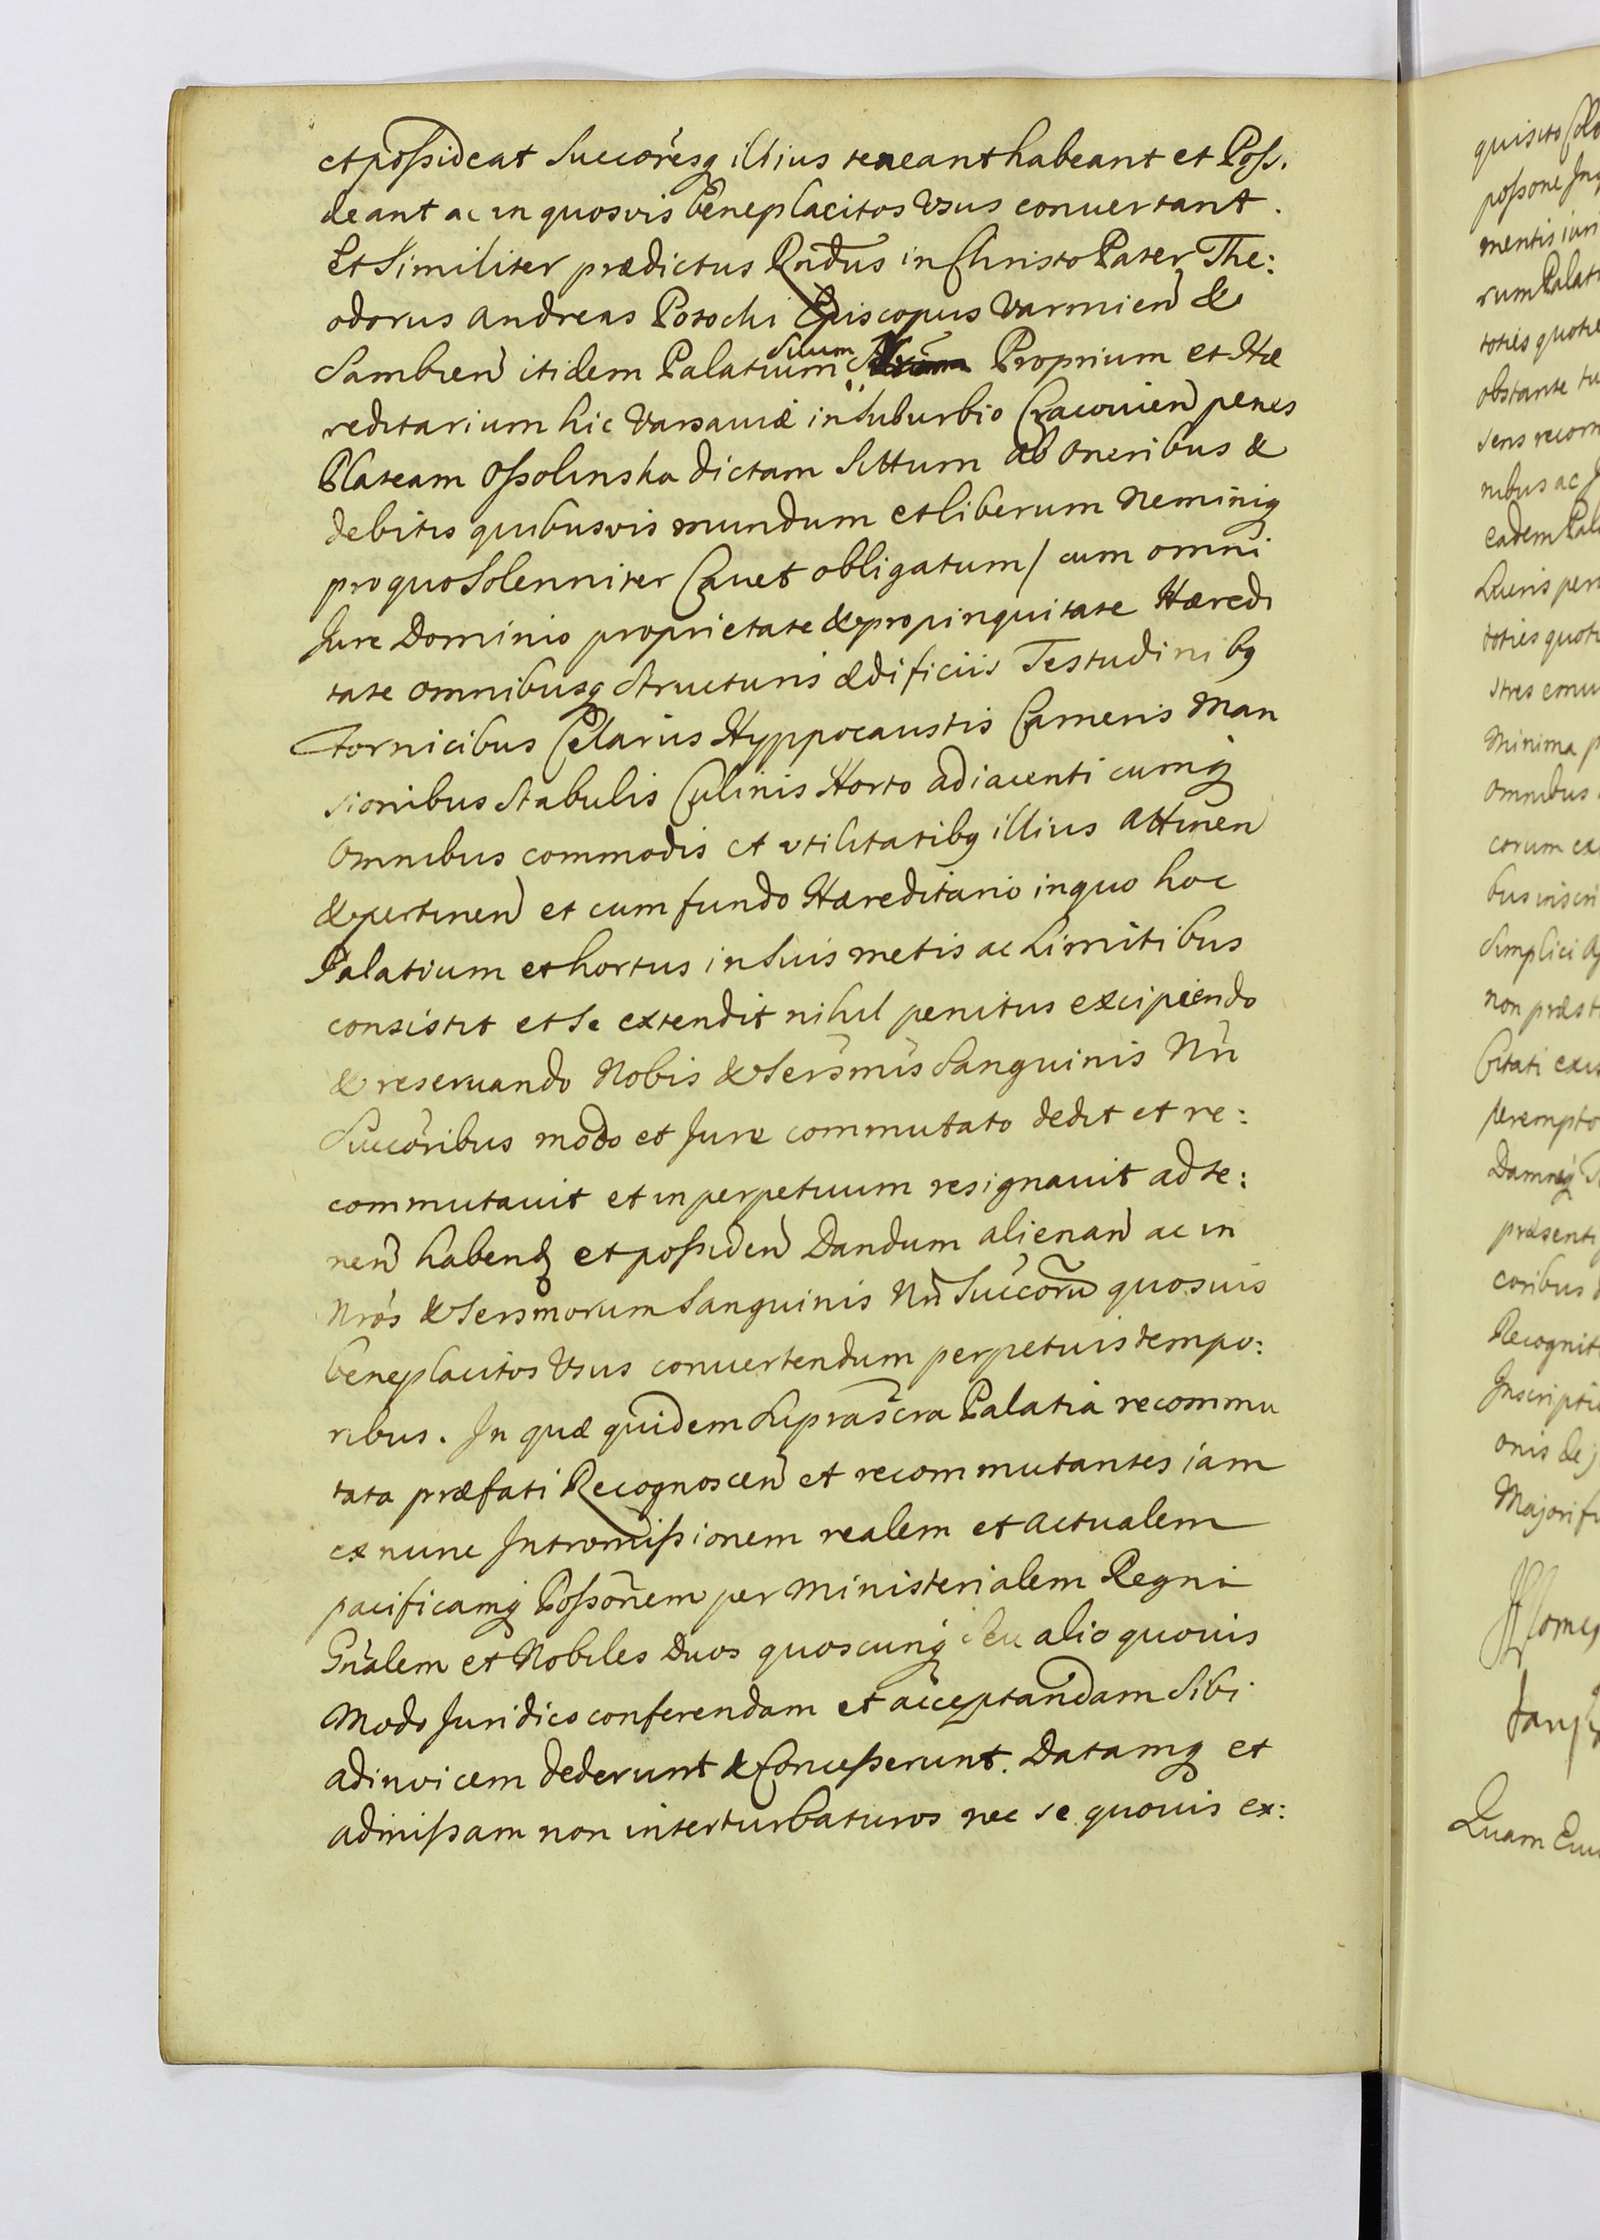 et possideat Succoresq illius teneant habeant et Poss.
deant ac in quosvis beneplacitos Vsus convertant.
Et Similiter prædictus Rndus in Christo Pater The:
odorus Andreas Potocki Episcopus Varmien &
Sambien itidem Palatium Suum Proprium et Hæ
reditarium hic Varsaviæ in Suburbio Cracovien penes
Plateam Ossolinska dictam Sittum ab Oneribus &
debitis quibusvis mundum et liberum Neminiq
pro quo Solenniter Cavet obligatum / cum omni
Jure Dominio proprietate & propinquitate Hæredi
tate omnibusq Structuris ædificiis Testudinibq
Fornicibus Celariis Hyppocaustis Cameris Man
sionibus Stabulis Culinis Horto adiacenti cumq
Omnibus commodis et vtilitatibq illius Attinen
& pertinen et cum fundo Hæreditario in quo hoc
Palatium et hortus in Suis metis ac Limitibus
consistit et Se extendit nihil penitus excipiendo
& reservando Nobis & Sersmis Sanguinis Nri
Succoribus modo et Jure commutato dedit et re:
commutavit et in perpetuum resignavit ad te:
nen habend et possiden Dandum alienan ac in
Nros & Sersmorum Sanguinis Nri Succoru quosuis
beneplacitos Vsus convertendum perpetuis tempo:
ribus. In quæ quidem Suprascra Palatia recommu
tata præfati Recognoscen et recommutantes iam
ex nunc Intromissionem realem et actualem
pacificamq Possonem per Ministerialem Regni
Gnalem et Nobiles Duos quoscunq seu alio quovis
Modo Juridico conferendam et acceptandam Sibi
adinvicem dederunt & Concesserunt. Datamq et
admissam non interturbaturos nec se quovis ex:
quisito
possone
mentis
rum Palati
toties quotie
obstante
sens recom
nibus ac
eadem Pala
Lucris
toties quoti
stres
Minima
Omnibus
corum
bus inscri
Simplici
non præst
perempto
Damnq
præsenti
coribus
Recognit
Inscriptio
onis de
Majori
Quam